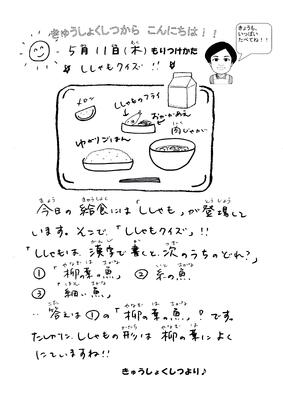 きゅうしょくしつから こんにちは!!
きょうも、
いっぱい
たべてね!!
5月11日(木)もりつけかた
ししゃもクイズ!!
メロン
ししゃものフライ
おかかあえ
肉じゃが
ゆかりごはん
今日の給食には「ししゃも」が登場して
います。そこで、「ししゃもクイズ」!!
「ししゃもは、漢字で書くと、次のうちのどれ?」
①「柳の葉の魚」 ②糸の魚
③「細い魚」
答えは①の「柳の葉の魚」です。
たしかに、ししゃもの形は柳の葉によく
にていますね!!
きゅうしょくしつより♪